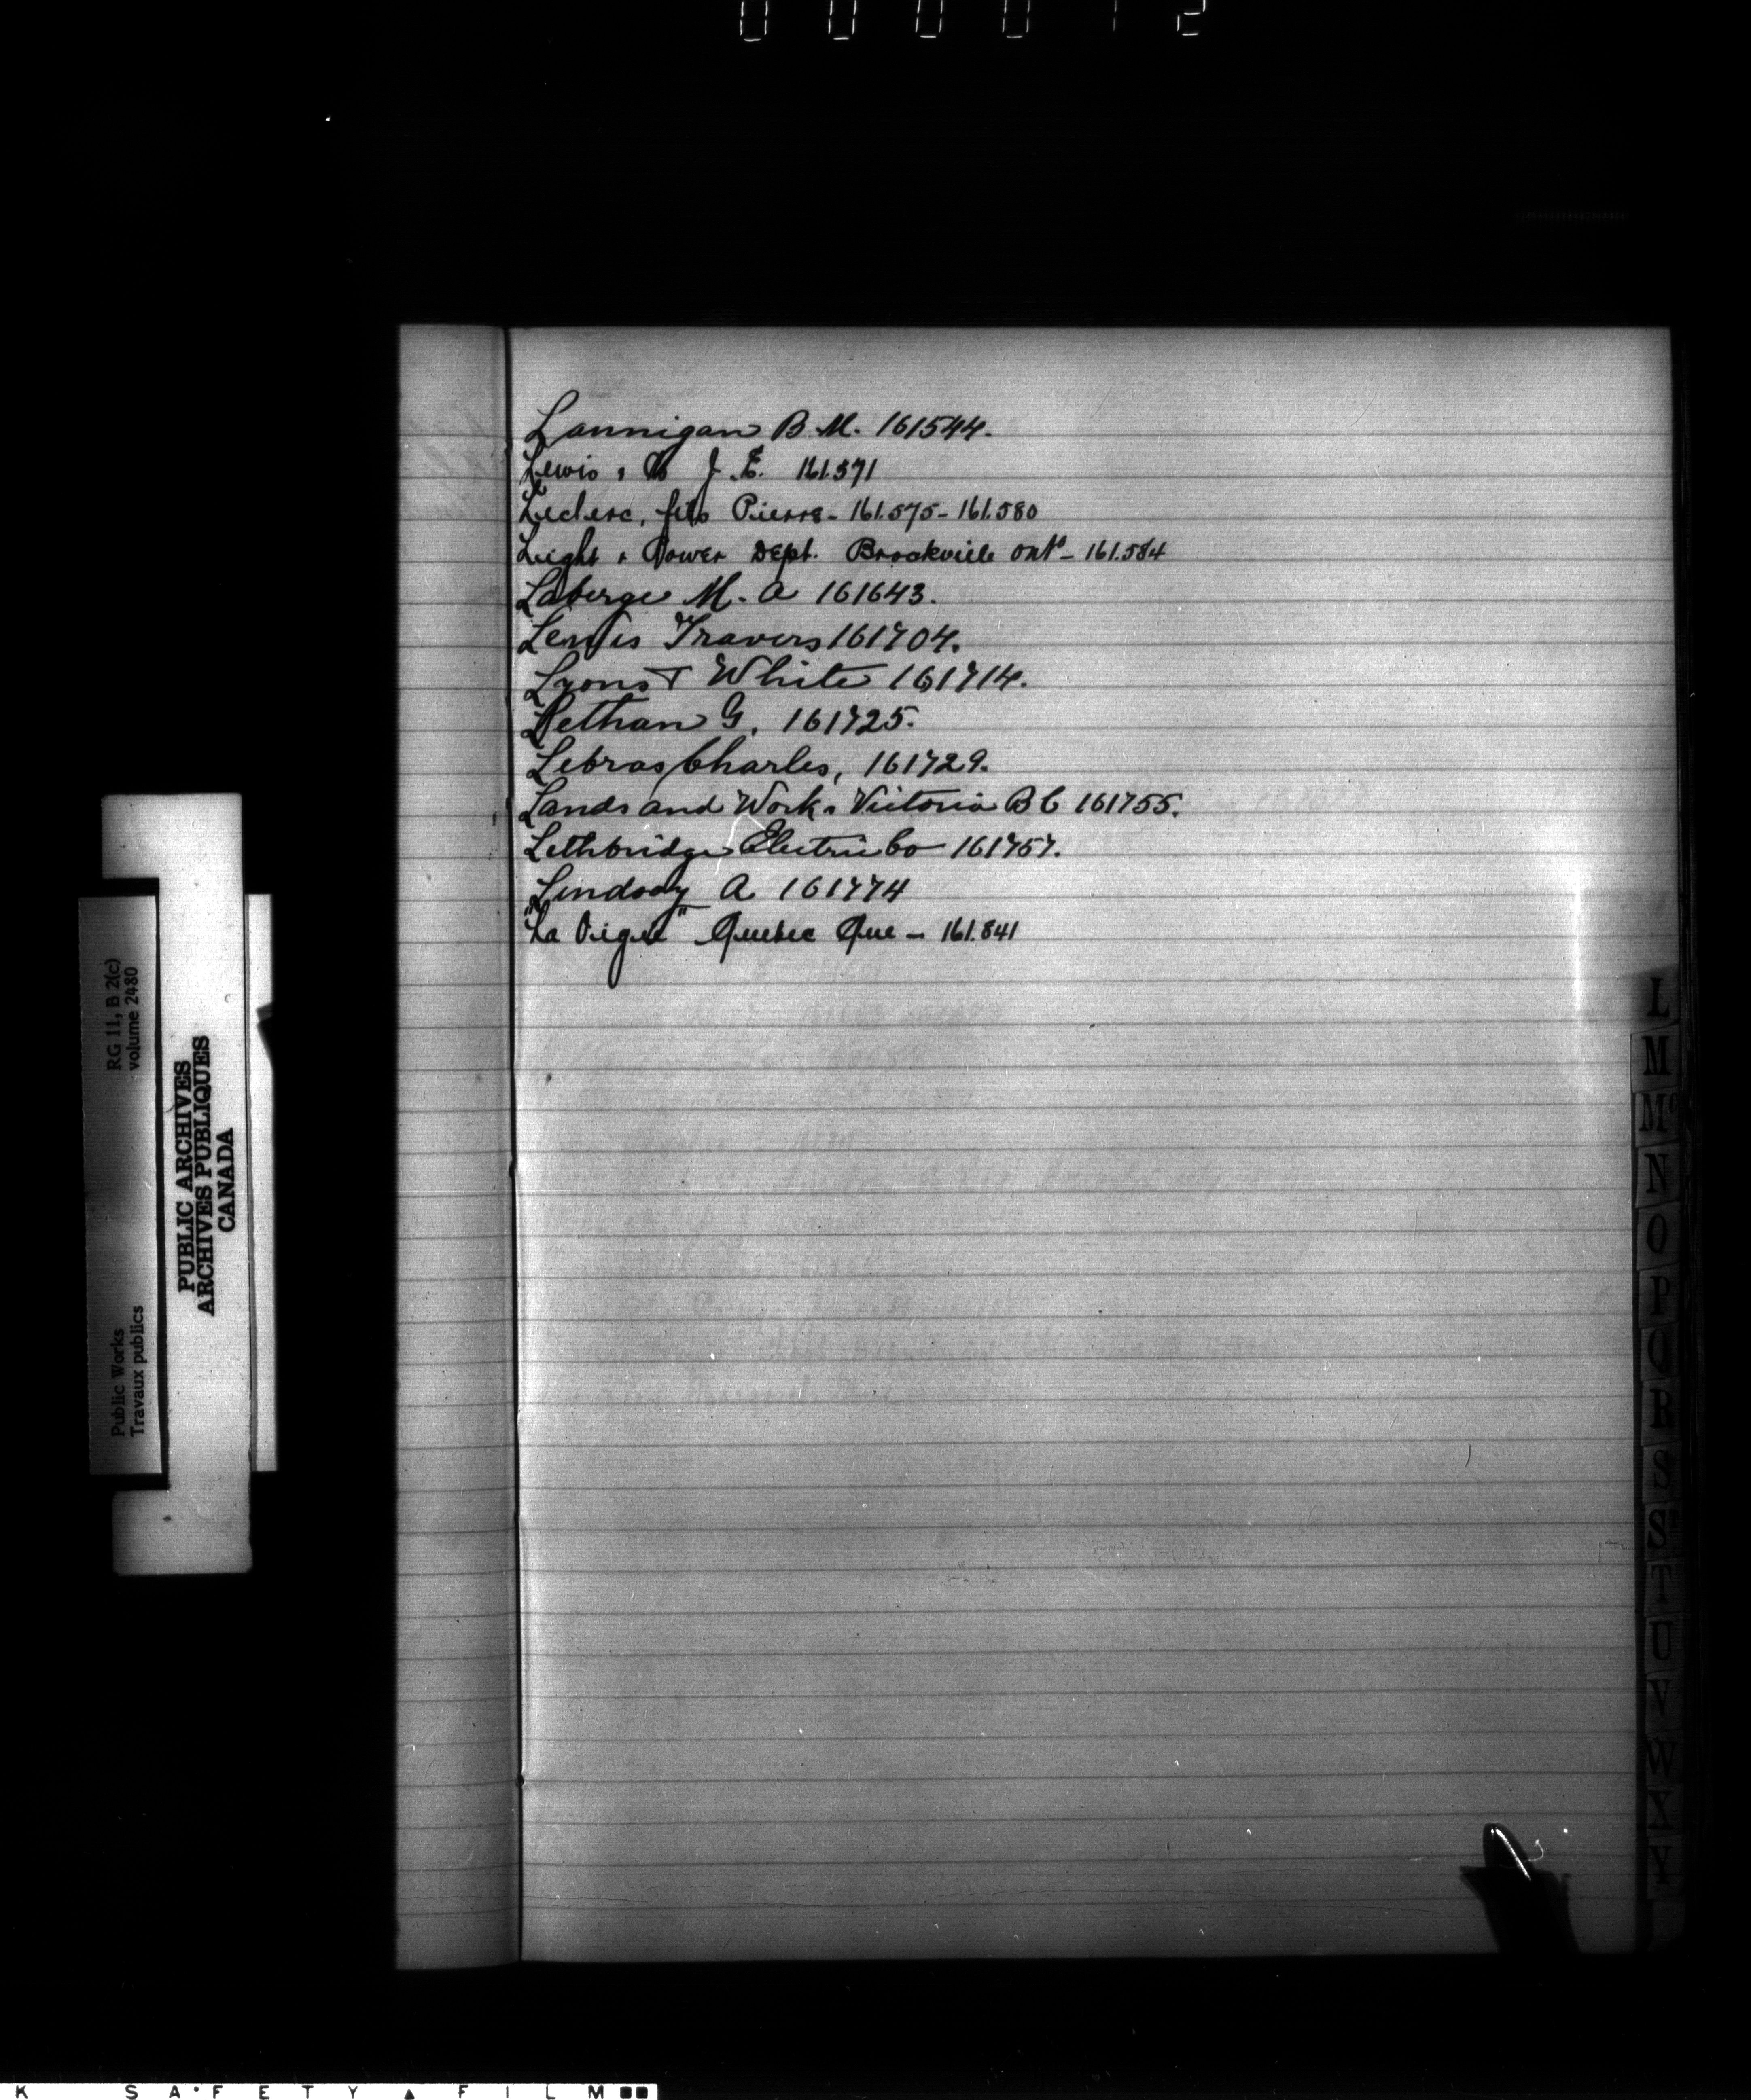 000012
Lannigan B. M. 161544.
Lewis & Co J. E. 161.571
Leclerc, fils Pierre - 161.575 - 161.580
Light & Power Dept. Brockville Ont° - 161.584
Laberge M. A 161643.
Lewis Travers 161704.
Lyons & White 161714.
Lethan G. 161725.
Lebras Charles, 161729.
Lands and Works Victoria B C 161755.
Lethbridge Electric Co 161757.
Lindsay A 161774
"La Vigie" Quebec Que - 161.841
RG 11, B 2(c)
volume 2480
Public Works
Travaux publics
PUBLIC ARCHIVES
ARCHIVES PUBLIQUES
CANADA
L
M
Mc
N
O
P
Q
R
S
T
U
V
W
X
Y
K SAFETY FILM